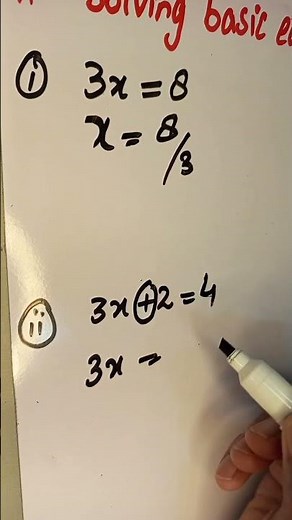 Solving basic
(i) 3x = 8
x = 8/3
(ii) 3x + 2 = 4
3x =